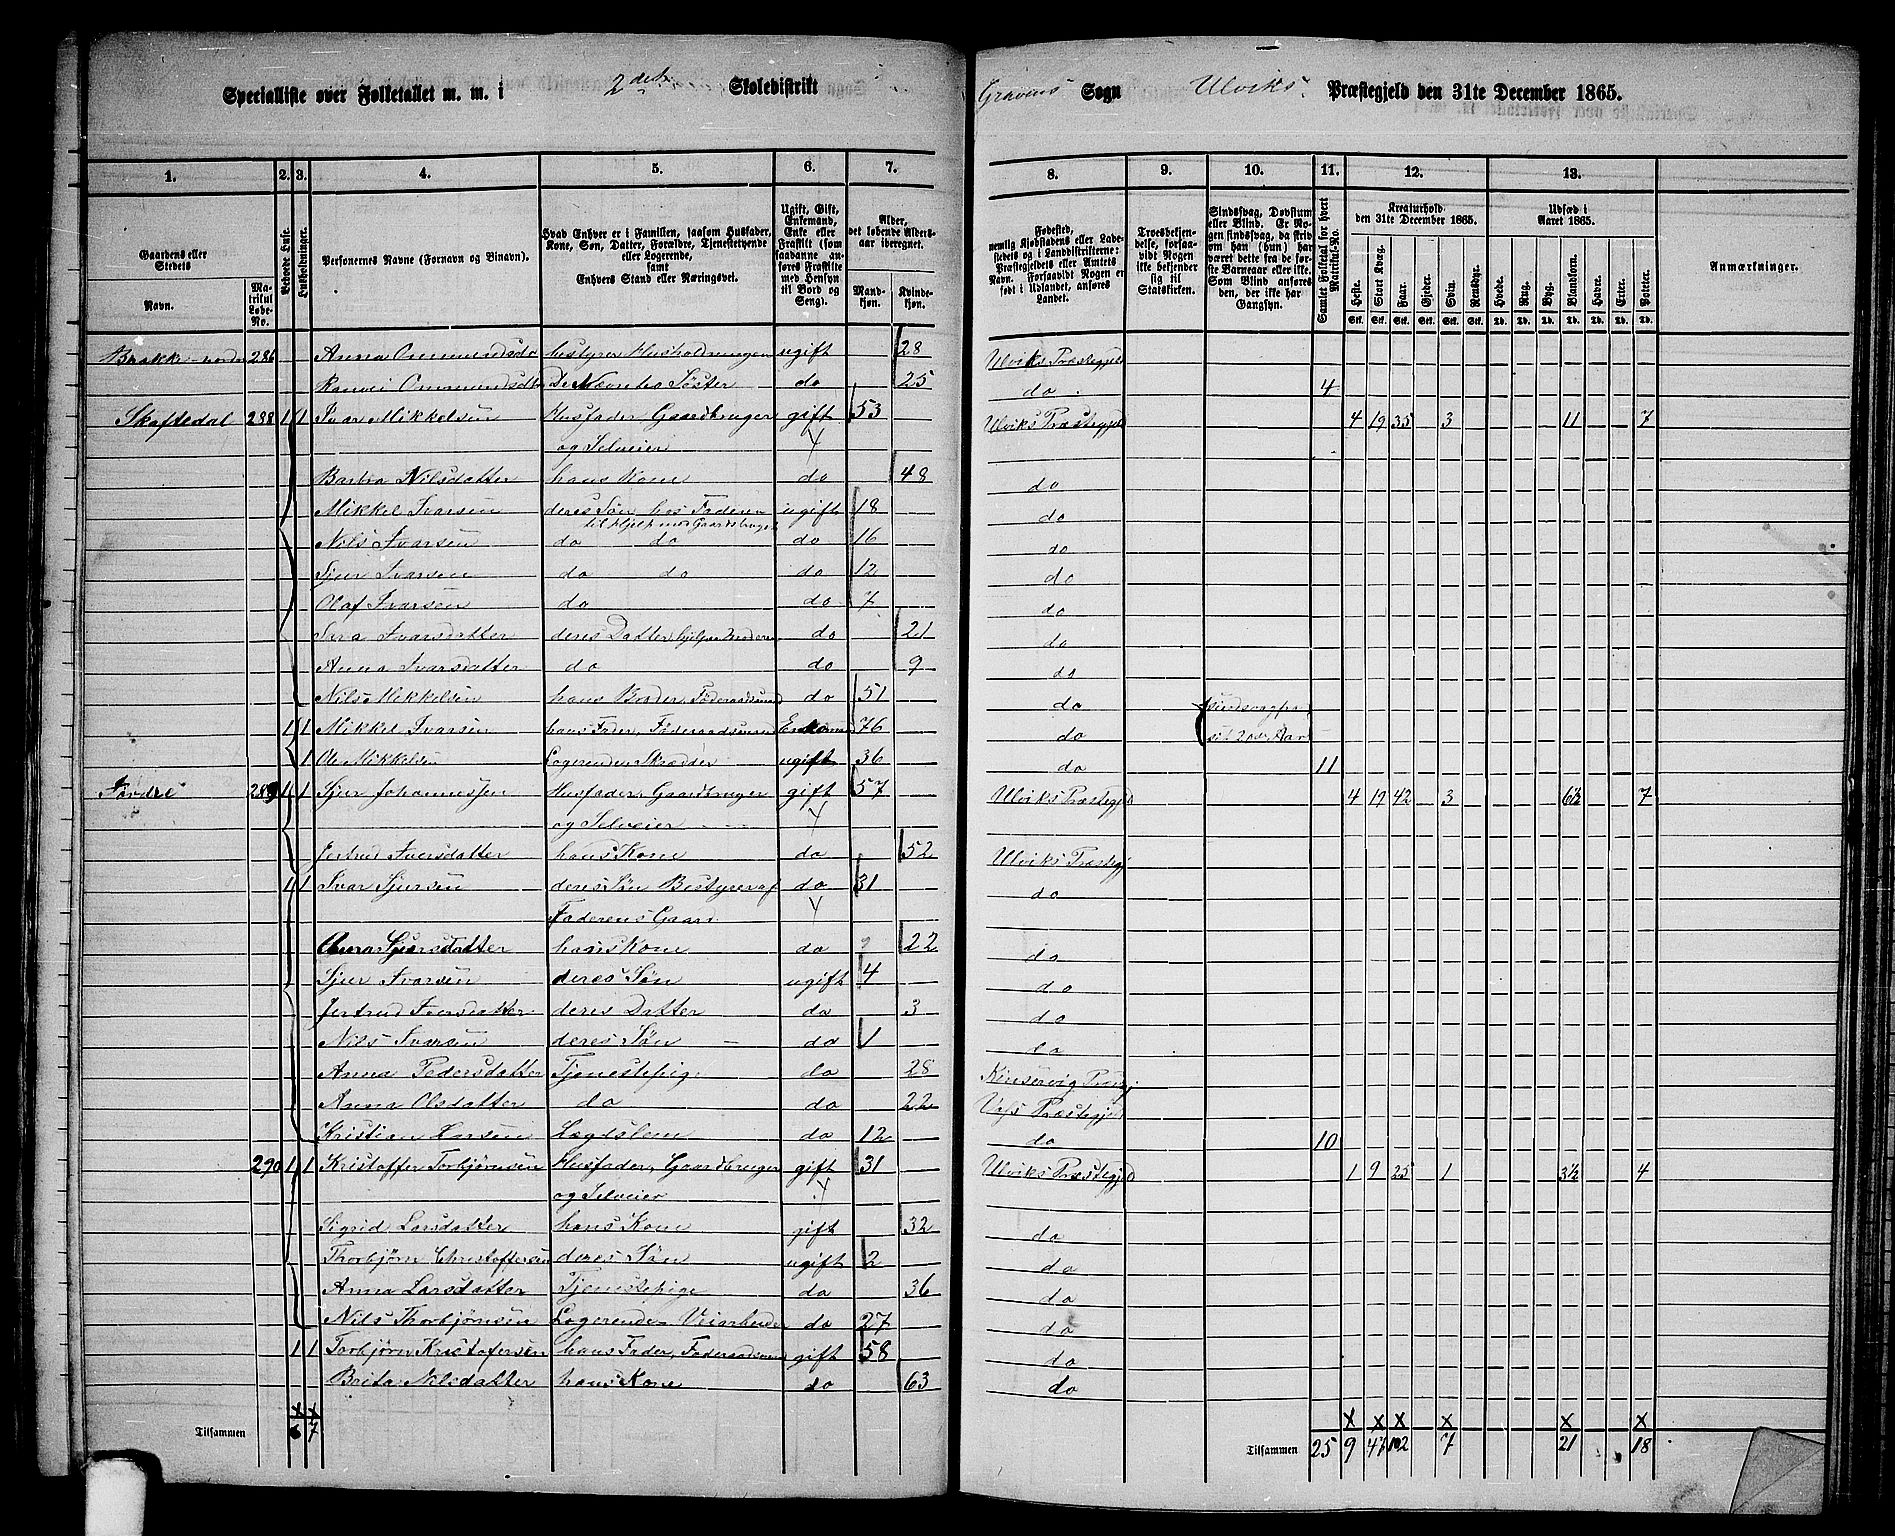 Specialliste over Folketallet m. m. i 2det Skoledistrikt Gravens Sogn Ulviks Præstegjeld den 31te December 1865.
1. 2. 3. 4. 5. 6. 7. 8. 9. 10. 11. 12. 13.
Gaardens eller Stedets
Navn.
Matrikul Løbe-No.
Beboede Huse.
Husholdninger.
Personernes Navne (Fornavn og Binavn).
Hvad Enhver er i Familien, saasom Husfader, Kone, Søn, Datter, Forældre, Tjenestetyende eller Logerende, samt Enhvers Stand eller Næringsvei.
Ugift, Gift, Enkemand, Enke eller Fraskilt (som saadanne anføres Fraskilte med Hensyn til Bord og Seng).
Alder, det løbende Aldersaar iberegnet.
Mandkjøn. Kvindekjøn.
Fødested, nemlig Kjøbstadens eller Ladestedets og i Landdistrikterne: Præstegjeldets eller Amtets Navn. Forsaavidt Nogen er født i Udlandet, anføres Landet.
Troesbekjendelse, forsaavidt Nogen ikke bekjender sig til Statskirken.
Sindssvag, Døvstum eller Blind. Er Nogen sindssvag, da skrives om han (hun) har været dette fra de første Barneaar eller ikke. Som Blind anføres den, der ikke har Gangsyn.
Samlet Folketal for hvert Matrikul-No.
Kreaturhold den 31te December 1865.
Heste. Stort Kvæg. Faar. Gjeder. Svin. Rensdyr.
Udsæd i Aaret 1865.
Hvede. Rug. Byg. Blandkorn. Havre. Erter. Poteter.
Anmærkninger.
Brakke-nordre 286 Anna Ommundsdtr bestyrer Husholdningen ugift 28 Ulviks Præstegjeld
Ranvei Ommundsdtr De Nævntes Søster do 25 do 4
Skaftedal 288 1 1 Ivar Mikkelsen Husfader Gaardbruger gift 53 Ulviks Præstegjeld 4 19 35 3 11 7
og Selveier
Barbra Nilsdatter hans Kone do 48 do
Mikkel Ivarsen deres Søn hos Faderen ugift 18 do
til Hjelp med Gaardsbruget
Nils Ivarsen do do do 16 do
Sjur Ivarsen do do do 12 do
Olaf Ivarsen do do 7 do
Sira Ivarsdatter deres Datter hjelper Moderen do 21 do
Anna Ivarsdatter do do 9 do
Nils Mikkelsen hans Broder Føderaadsmand do 51 do
1 1 Mikkel Ivarsen hans Fader, Føderaadsmand Enkemand 76 do
1 Ole Mikkelsen Logerende, Skrædder ugift 36 do 11
289 1 1 Sjur Johannessen Husfader, Gaardbruger gift 57 Ulviks Præstegjeld 4 19 42 3 6½ 7
og Selveier
Jertrud Iversdatter hans Kone do 52 Ulviks Præstegj
1 1 Ivar Sjursen deres Søn Bestyrer af do 31 do
Faderens Gaard
Anna Sjursdatter hans Kone do 22 do
Sjur Ivarsen deres Søn ugift 4 do
Jertrud Iversdatter deres Datter do 3 do
Nils Ivarsen deres Søn do 1 do
Anna Pedersdatter Tjenestepige do 28 Kinservig Præstgj
Anna Olsdatter do do 22 Vos's Præstegjeld
Kristian Larsen Lægdslem do 12 do 10
290 1 1 Kristoffer Torbjørnsen Husfader, Gaardbruger gift 31 Ulviks Præstegjeld 1 9 25 1 3½ 4
og Selveier
Sigrid Larsdatter hans Kone gift 32 do
Thorbjørn Christoffersen deres Søn ugift 2 do
Anna Larsdatter Tjenestepige do 36 do
Nils Thorbjørnsen Logerende Veiarbeider do 27 do
1 1 Torbjørn Kristofersen hans Fader, Føderaadsmand gift 58 do
Brita Nilsdatter hans Kone do 63 do
Tilsammen 6 7 Tilsammen 25 9 47 102 7 21 18